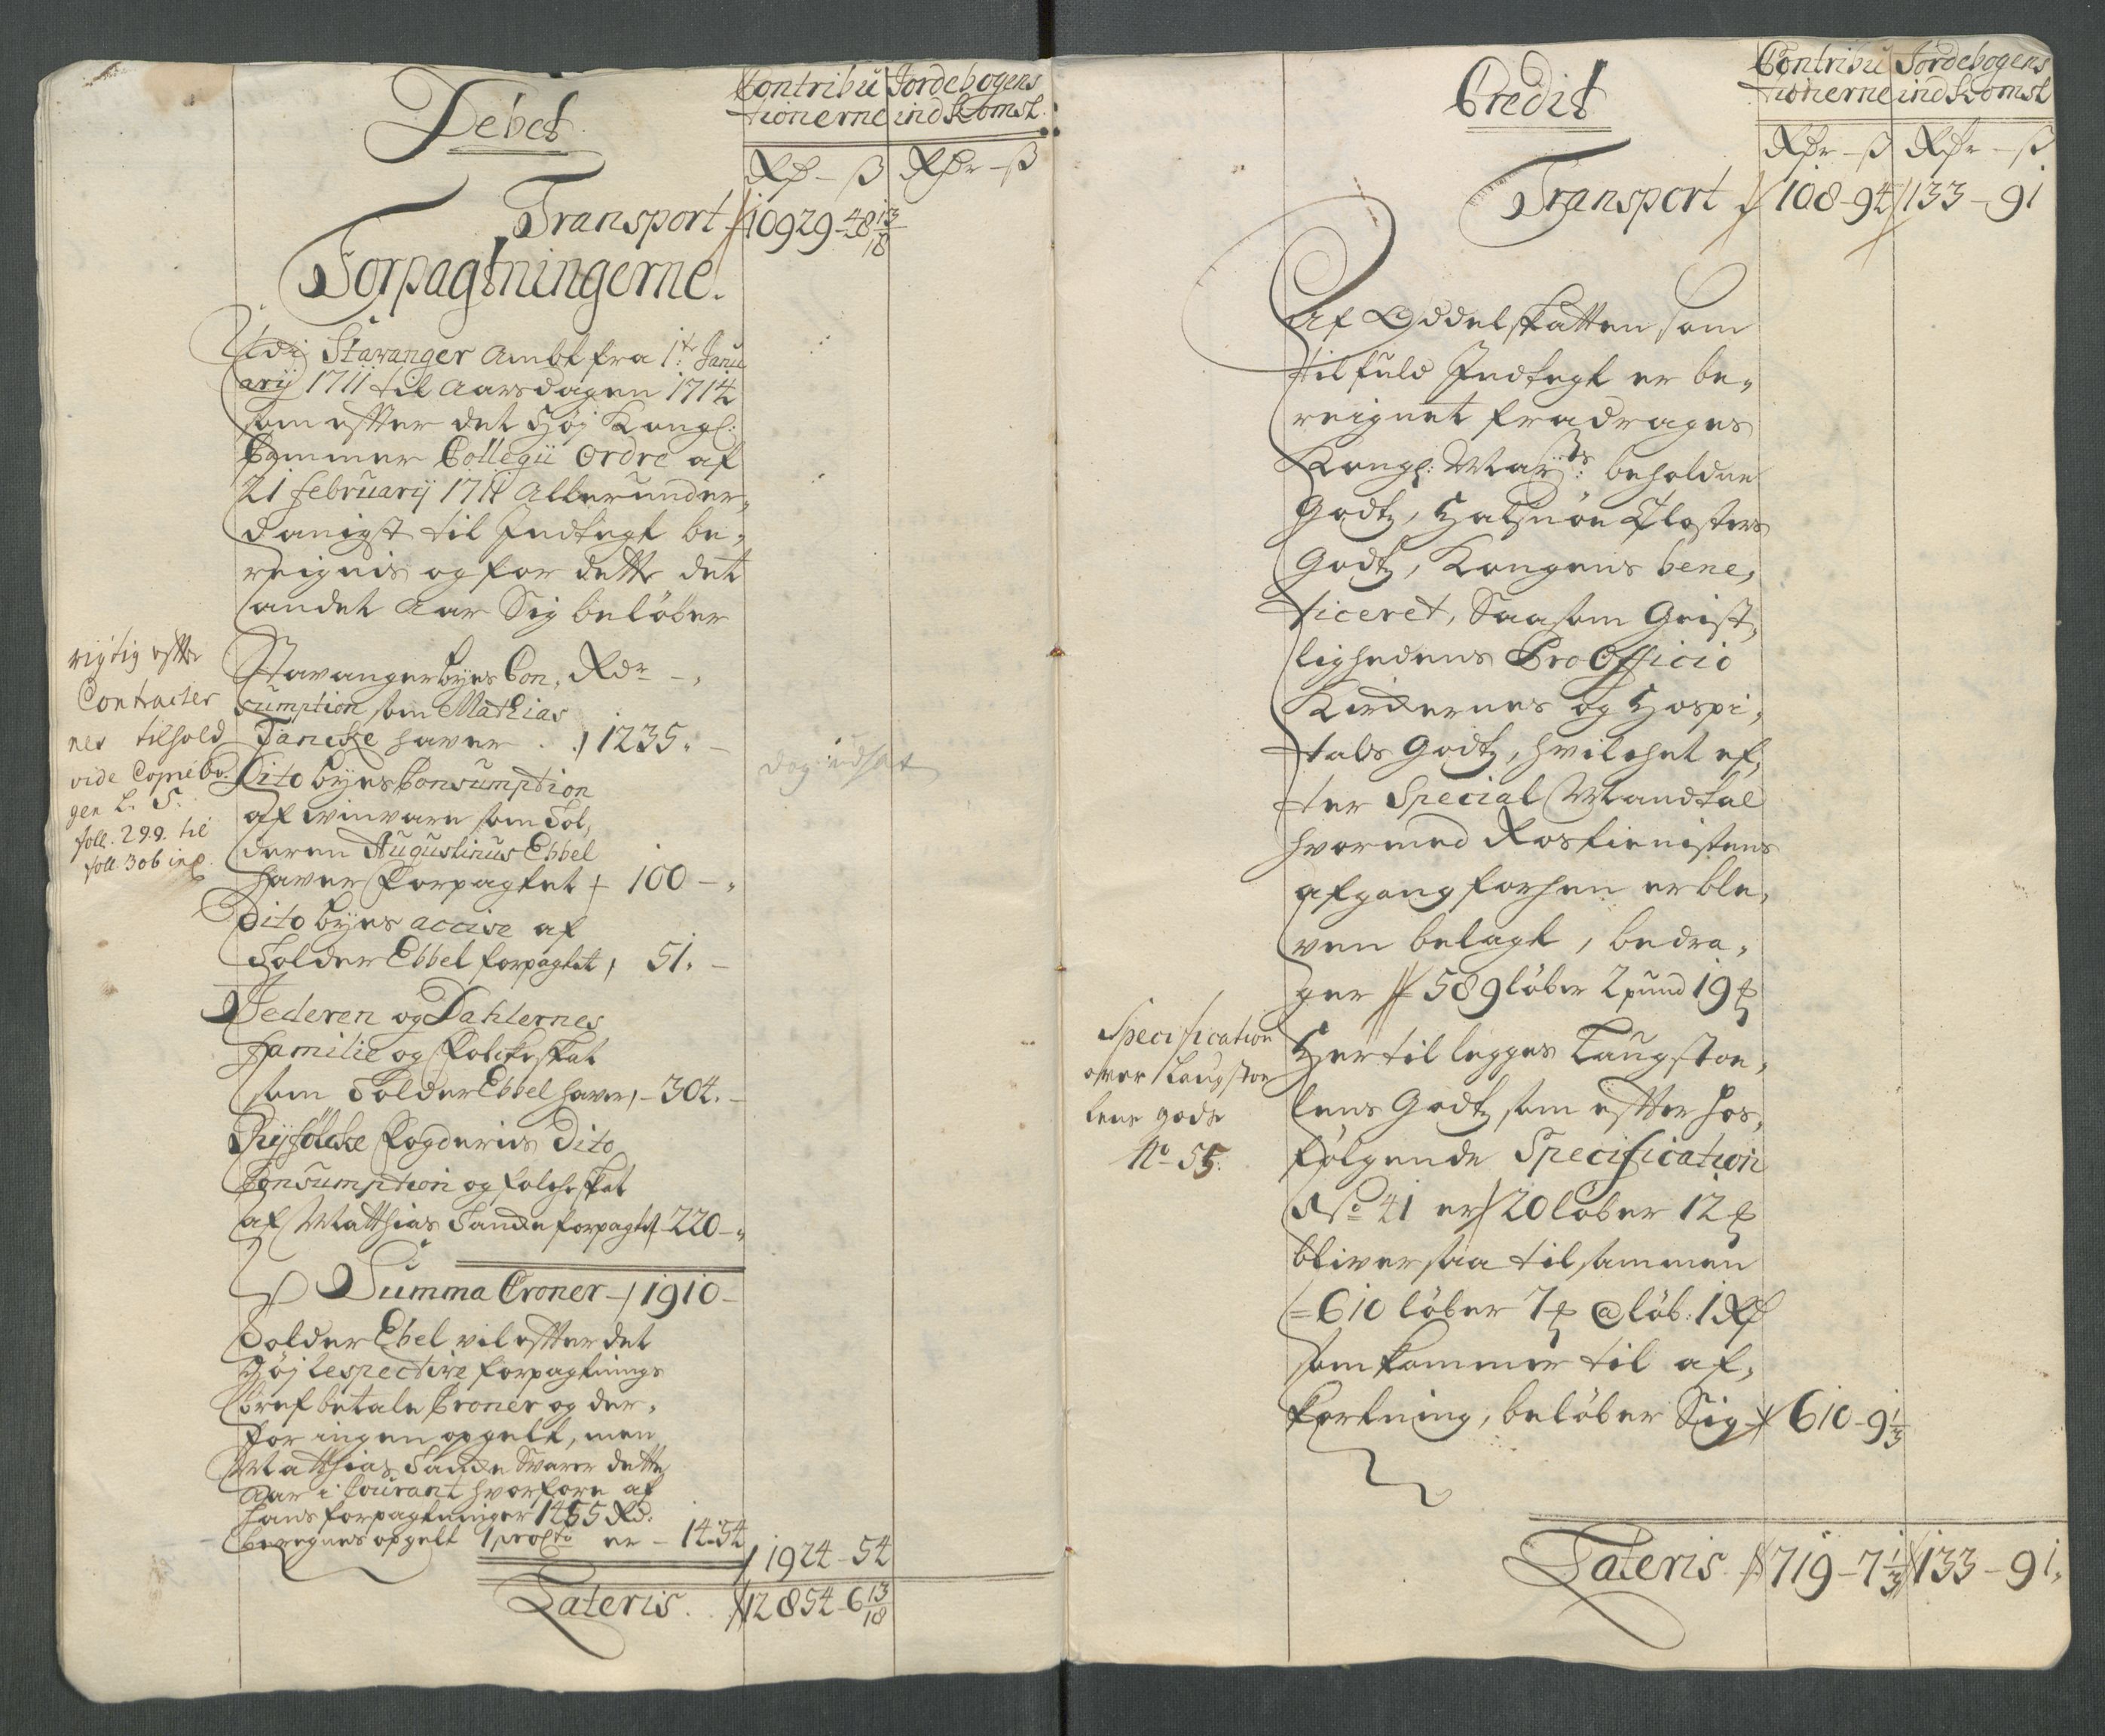 Debet
Contribu
tionerne
Jordebogens
indkomst.
Rdr – ß
Rdr – ß
Transport
10929 – 48 13/18
Forpagtningerne.
Udi Stavanger Ambt fra 1t Janu
arij 1711 til aarsdagen 1714
som effter det Høj Kongl:
Cammer Collegii Ordre af
21 februarij 1711 Allerunder„
danigst til Indtegt be„
reignis og for dette det
andet aar Sig beløber
Stavanger byes Con„ Rdr – „
sumption som Mathias
Tancke haver . . 1235. –
Dito byes Consumption
af winvare som Tol„
deren Augustinus Ebbel
haver Forpagtet 100 – „
Dito byes accise af
Tolder Ebbel forpagtet, 51. –
Jederen og Dahlernes
familie og Folcke skat
som Tolder Ebbel haver, – 304. –
Ryfølcke Fogderies Dito
Consumption og folcheskat
af Matthias Tancke forpagtet 220 – „
Summa Croner – 1910 –
Tolder Ebel vil effter det
Høj respective forpagtnings
bref betale Croner og der„
for ingen opgelt, men
Matthias Tancke Svarer dette
Aar i Courant hvorfore af
hans forpagtninger 1455 Rd:
beregnes opgelt 1 procto er – 14 – 54
1924 – 54
Lateris. 12854 – 6 13/18
rigtig effter
Contracter
nes tilhold
vide Copiebo„
gen L. S.
foll. 299. til
foll. 306 incl.
Credit
Contribu
tionerne
Jordebogens
indkomst
Rdr – ß
Rdr – ß
Transport 108 – 94 133 – 91
Af Oddelskatten som
til fuld Indtegt er be„
reignet fradrages
Kongl: Mayts: beholdne
Godtz, Halsnøe Closters
Godtz, Kongens bene„
ficeret, Saasom Geist„
lighedens Pro Officio
Kirckernes og Hospi„
tals Godtz, hvilchet ef„
ter Special Mandtal
hvormed Rostienistens
afgang forhen er ble„
ven belagt, bedra„
ger 589 løber 2 pund 19 ℔
Hertil legges Laugstoe„
lens Godtz som effter hos„
følgende Specification
No 41 er 20 løber 12 ℔
bliver saa tilsammen
610 løber 7 ℔ @ løb: 1 Rd
som kommer til af„
kortning, beløber Sig 610 – 9 1/3
Lateris. 719 – 7 1/3 133 – 91.
Specification
over Laugstoe
lene gods
No 55.